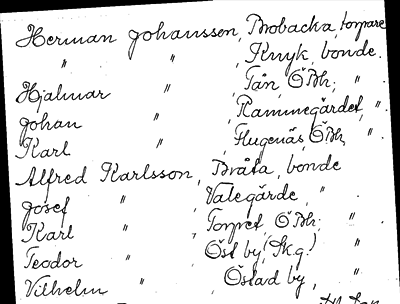 Herman Johansson, Brobacka, torpare
" " , Knyk, bonde.
Hjalmar " , Tån, Ö Bh; "
Johan " , Rammegärdet, ".
Karl " , Flugenäs, Ö Bh, ".
Alfred Karlsson, Bråta, bonde
Josef " , Valegärde, "
Karl " , Torpet, Ö Bh; "
Teodor " , Öst by (Sk.g.) "
Vilhelm " , Östad by, "